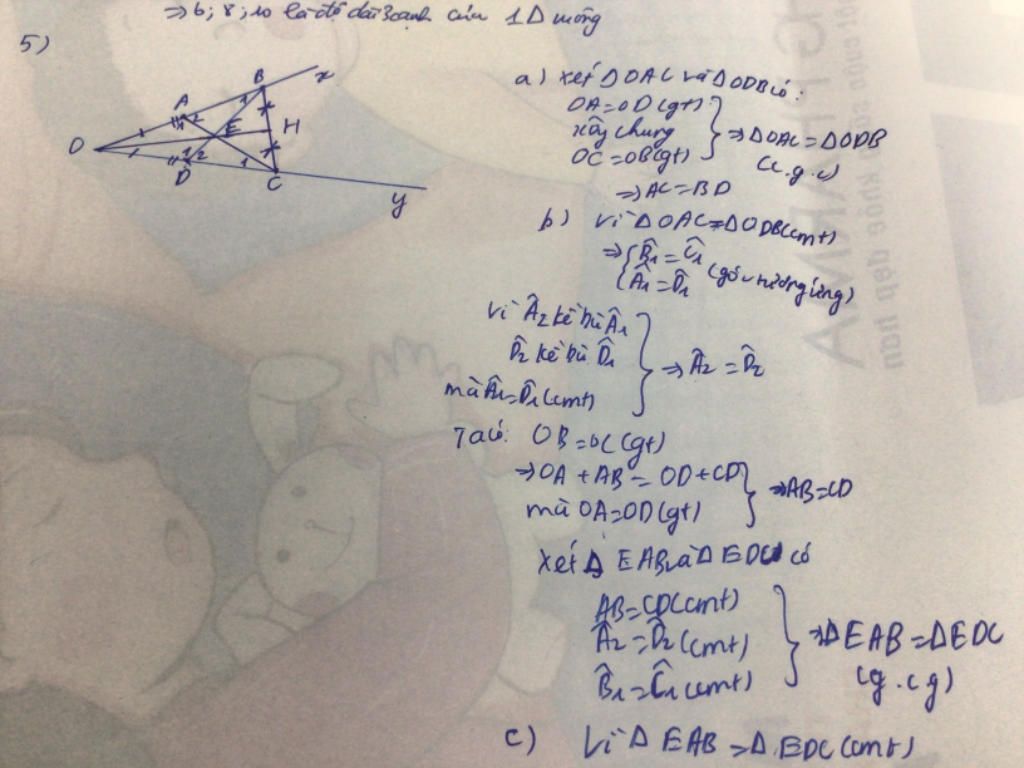 => 6; 8; 10 là độ dài 3 cạnh của 1 Δ vuông
5)
O A B x E H D C y
1 2 1 1 2 1
a) xét ΔOAC và ΔODB có:
OA=OD(gt)
xOy chung
OC=OB(gt)
=> ΔOAC=ΔODB
(c.g.c)
=> AC=BD
b) vì ΔOAC=ΔODB(cmt)
=> B̂1=Ĉ1
Â1=D̂1
(góc tương ứng)
vì Â2 kề bù Â1
D̂2 kề bù D̂1
mà Â1=D̂1(cmt)
=> Â2=D̂2
Ta có: OB=OC(gt)
=> OA+AB=OD+CD
mà OA=OD(gt)
=> AB=CD
xét Δ EAB và Δ EDC có
AB=CD(cmt)
Â2=D̂2(cmt)
B̂1=Ĉ1(cmt)
=> ΔEAB=ΔEDC
(g.c g)
c) Vì Δ EAB=Δ EDC(cmt)